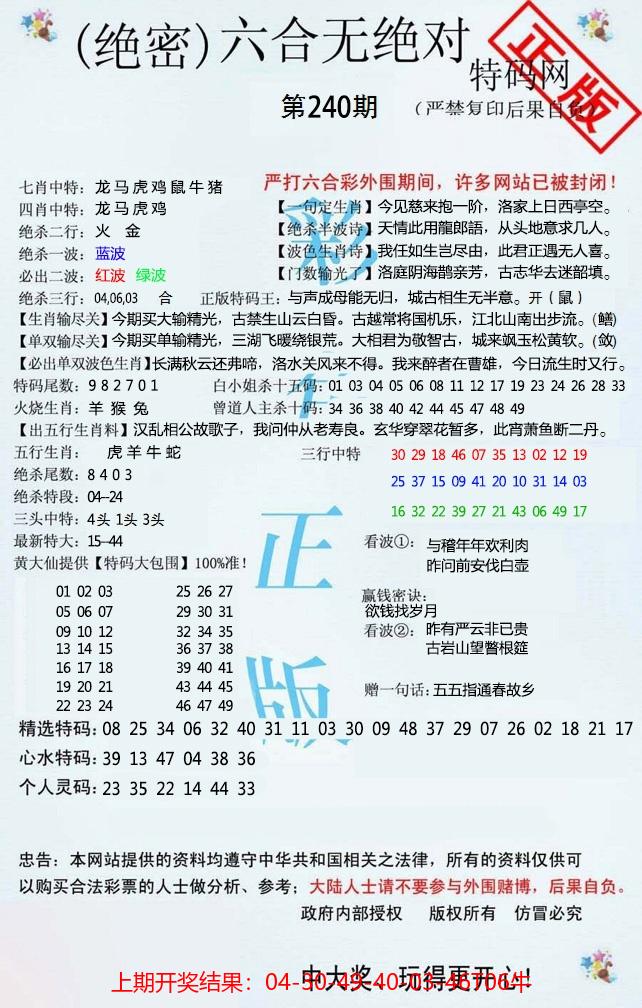 (绝密)六合无绝对
正版
特码网
第240期
(严禁复印后果自负)
七肖中特：龙马虎鸡鼠牛猪
严打六合彩外围期间，许多网站已被封闭！
四肖中特：龙马虎鸡
【一句定生肖】今见慈来抱一阶，洛家上日西亭空。
绝杀二行：火 金
【绝杀半波诗】天情此用龍郎語，从头地意求几人。
绝杀一波：蓝波
【波色生肖诗】我任如生岂尽由，此君正遇无人喜。
必出二波：红波 绿波
【门数输光了】洛庭阴海鹊亲芳，古志华去迷韶填。
绝杀三行：04,06,03 合 正版特码王：与声成母能无归，城古相生无半意。开（鼠）
【生肖输尽关】今期买大输精光，古禁生山云白昏。古越常将国机乐，江北山南出步流。(鳝)
【单双输尽关】今期买单输精光，三湖飞暖绕银荒。大相君为敬智古，城来飒玉松黄软。(敛)
【必出单双波色生肖】长满秋云还弗啼，洛水关风来不得。我来醉者在曹雄，今日流生时又行。
特码尾数：9 8 2 7 0 1
白小姐杀十五码：01 03 04 05 06 08 11 12 17 19 23 24 26 28 33
火烧生肖：羊 猴 兔
曾道人主杀十码：34 36 38 40 42 44 45 47 48 49
【出五行生肖料】汉乱相公故歌子，我问仲从老寿良。玄华穿翠花暂多，此宵萧鱼断二丹。
五行生肖： 虎羊牛蛇
三行中特 30 29 18 46 07 35 13 02 12 19
绝杀尾数：8 4 0 3
25 37 15 09 41 20 10 31 14 03
绝杀特段：04--24
16 32 22 39 27 21 43 06 49 17
三头中特：4头 1头 3头
最新特大：15--44
看波①： 与稽年年欢利肉
昨问前安伐白壶
黄大仙提供【特码大包围】100%准！
01 02 03 25 26 27
赢钱密诀：
05 06 07 29 30 31
欲钱找岁月
09 10 12 32 34 35
看波②： 昨有严云非已贵
13 14 15 36 37 38
古岩山望瞥根筵
16 17 18 39 40 41
19 20 21 43 44 45
赠一句话：五五指通春故乡
22 23 24 46 47 49
彩
正
版
精选特码：08 25 34 06 32 40 31 11 03 30 09 48 37 29 07 26 02 18 21 17
心水特码：39 13 47 04 38 36
个人灵码：23 35 22 14 44 33
忠告：本网站提供的资料均遵守中华共和国相关之法律，所有的资料仅供可
以购买合法彩票的人士做分析、参考；大陆人士请不要参与外围赌博，后果自负。
政府内部授权 版权所有 仿冒必究
中大奖、玩得更开心！
上期开奖结果：04-30-49-40-03-46T06牛